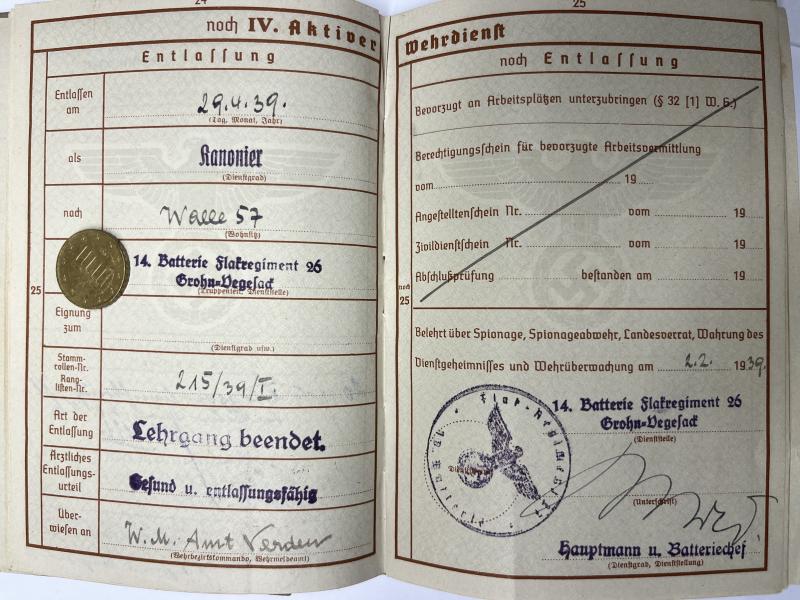 24
noch IV. Aktiver
Entlassung
Entlassen
am
29.4.39.
(Tag, Monat, Jahr)
als
Kanonier
(Dienstgrad)
nach
Walle 57
(Wohnsitz)
1000
14. Batterie Flakregiment 26
Grohn-Vegesack
(Truppenteil, Dienststelle)
25
Eignung
zum
(Dienstgrad usw.)
Stamm-
rollen-Nr.
Rang-
listen-Nr.
215/39/I.
Art der
Entlassung
Lehrgang beendet.
Ärztliches
Entlassungs-
urteil
Gesund u. entlassungsfähig
Über-
wiesen an
W. M. Amt Verden
(Wehrbezirkskommando, Wehrmeldeamt)
25
Wehrdienst
noch Entlassung
Bevorzugt an Arbeitsplätzen unterzubringen (§ 32 [1] W. G.)
Berechtigungsschein für bevorzugte Arbeitsvermittlung
vom 19
Angestelltenschein Nr. vom 19
Zivildienstschein Nr. vom 19
Abschlußprüfung bestanden am 19
noch
25
Belehrt über Spionage, Spionageabwehr, Landesverrat, Wahrung des
Dienstgeheimnisses und Wehrüberwachung am 2.2. 1939.
14. Batterie Flakregiment 26
Grohn-Vegesack
(Dienststelle)
Flak-Regiment
(Unterschrift)
Hauptmann u. Batteriechef
(Dienstgrad, Dienststellung)